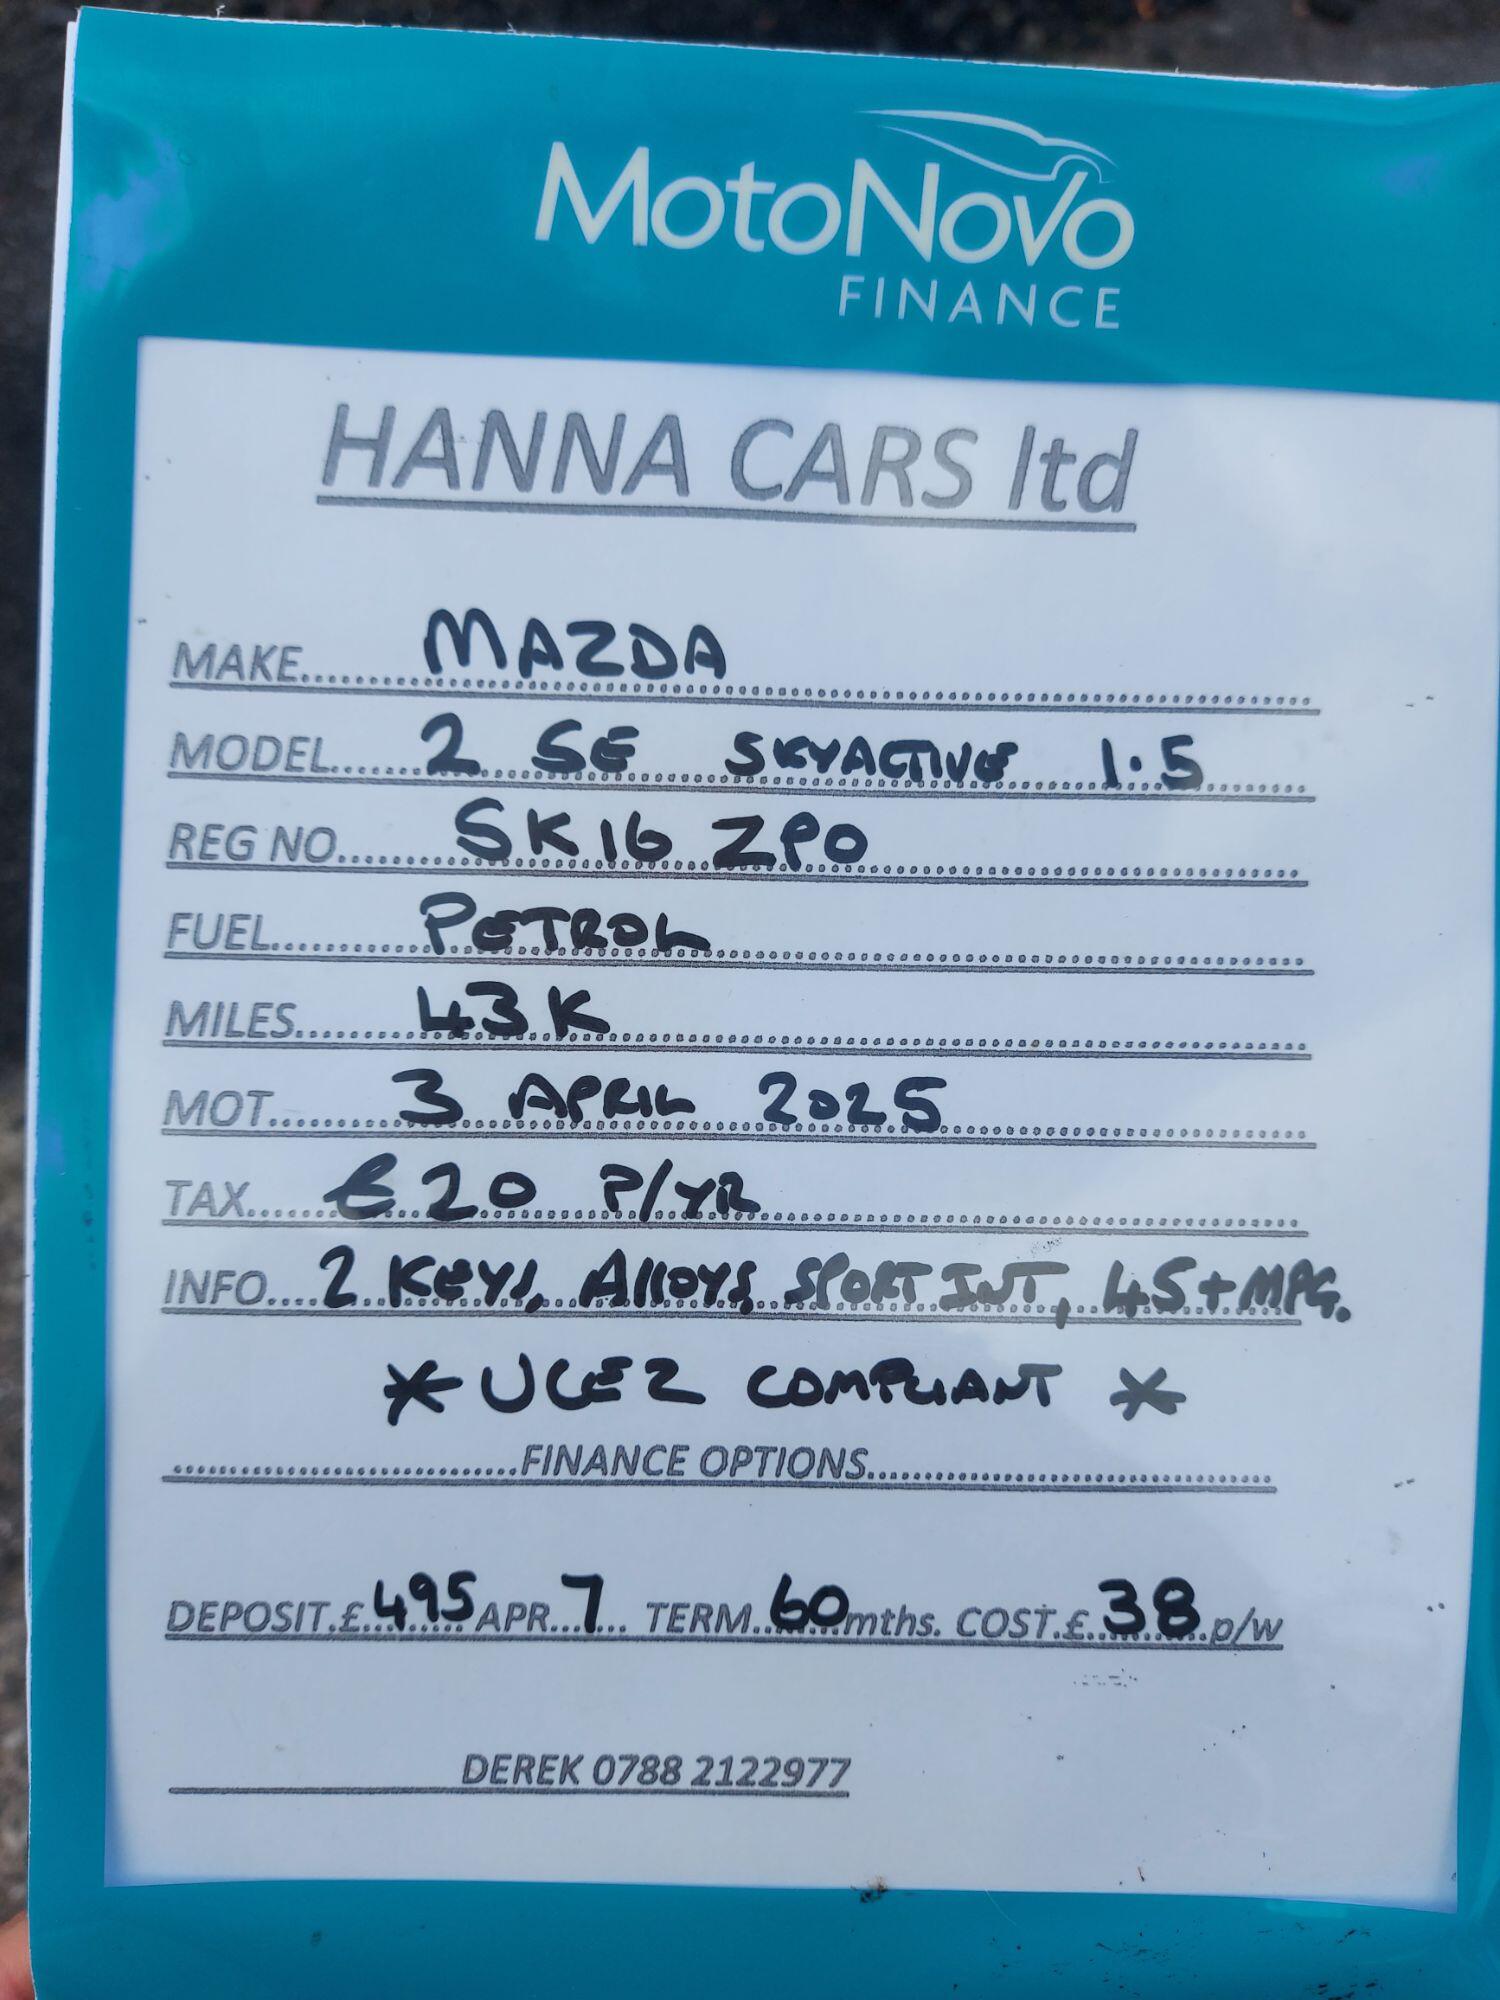 MotoNovo
FINANCE
HANNA CARS ltd
MAKE.....MAZDA.....
MODEL.....2 SE SKYACTIVE 1.5.....
REG NO.....SK16 ZPO.....
FUEL.....PETROL.....
MILES.....43K.....
MOT.....3 APRIL 2025.....
TAX.....£20 P/YR.....
INFO....2 KEYS, ALLOYS, SPORT INT, 45+MPG.
* UCEZ COMPLIANT *
.....FINANCE OPTIONS.....
DEPOSIT.£.495 APR...7... TERM..60mths. COST.£.38.p/w
DEREK 0788 2122977